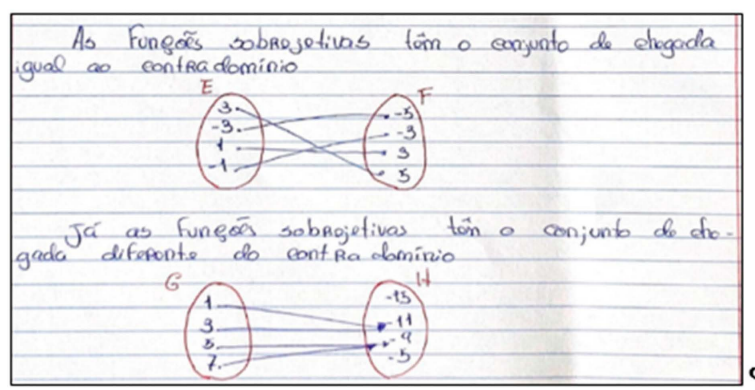 As Funções sobrejetivas têm o conjunto de chegada
igual ao contradomínio
E F
3 -5
-3 -3
1 3
-1 5
Já as Funções sobrejetivas têm o conjunto de che-
gada diferente do contradomínio
G H
1 -13
3 -11
5 -9
7 -5